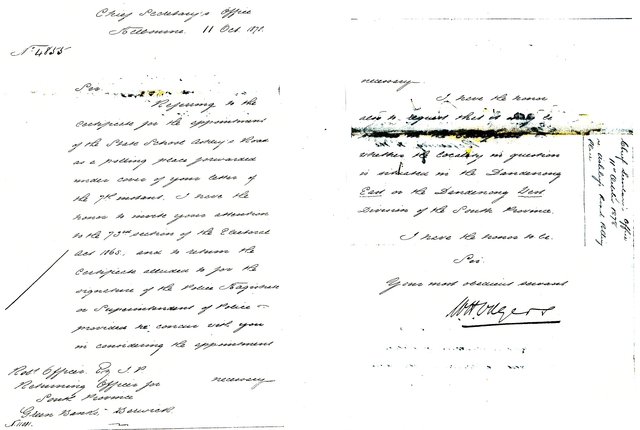 Chief Secretary's Office
Melbourne 11 Oct. 1878.
No. 4855
Sir
Referring to the
Certificate for the appointment
of the State School Road
as a polling place forwarded
under cover of your letter of
the 7th instant. I have the
honor to invite your attention
to the 73rd section of the Electoral
Act 1865. and to return the
Certificate alluded to for the
signature of the Police Magistrate
or Superintendent of Police –
provided he concur with you
in considering the appointment
necessary
Robt Officer Esq J.P.
Returning Officer for
South Province
Green Banks, Berwick
necessary
I have the honor
also to request that
whether the locality in question
is situated in the Dandenong
East or the Dandenong West
Division of the South Province.
I have the honor to be.
Sir.
Your most obedient servant
W.H. Odgers
Chief Secretary's Office
11th October 1878
Road Polling
Place